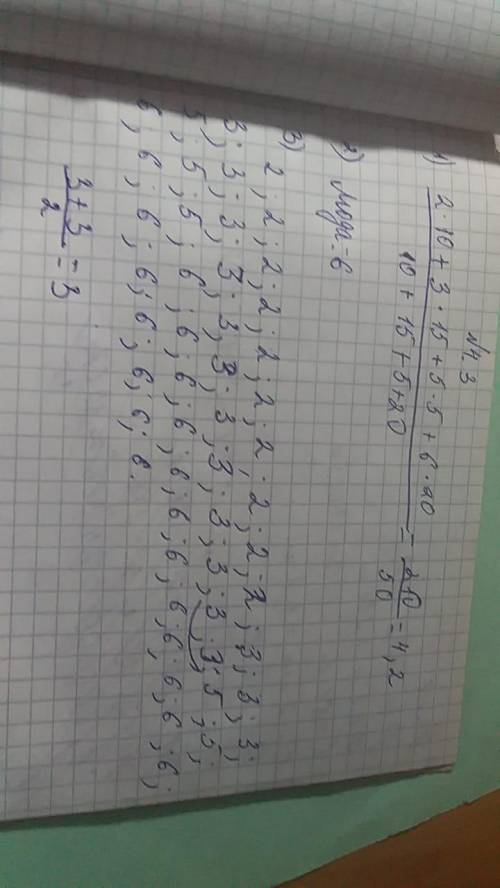 №4.3
1) (2·10 + 3·15 + 5·5 + 6·20) / (10 + 15 + 5 + 20) = 210/50 = 4,2
2) Мода: 6
3) 2; 2; 2; 2; 2; 2; 2; 2; 2; 2; 3; 3; 3;
3; 3; 3; 3; 3; 3; 3; 3; 3; 3; 3; 3; 5; 5;
5; 5; 5; 6; 6; 6; 6; 6; 6; 6; 6; 6; 6; 6; 6;
6; 6; 6; 6; 6; 6; 6; 6.
(3+3)/2 = 3